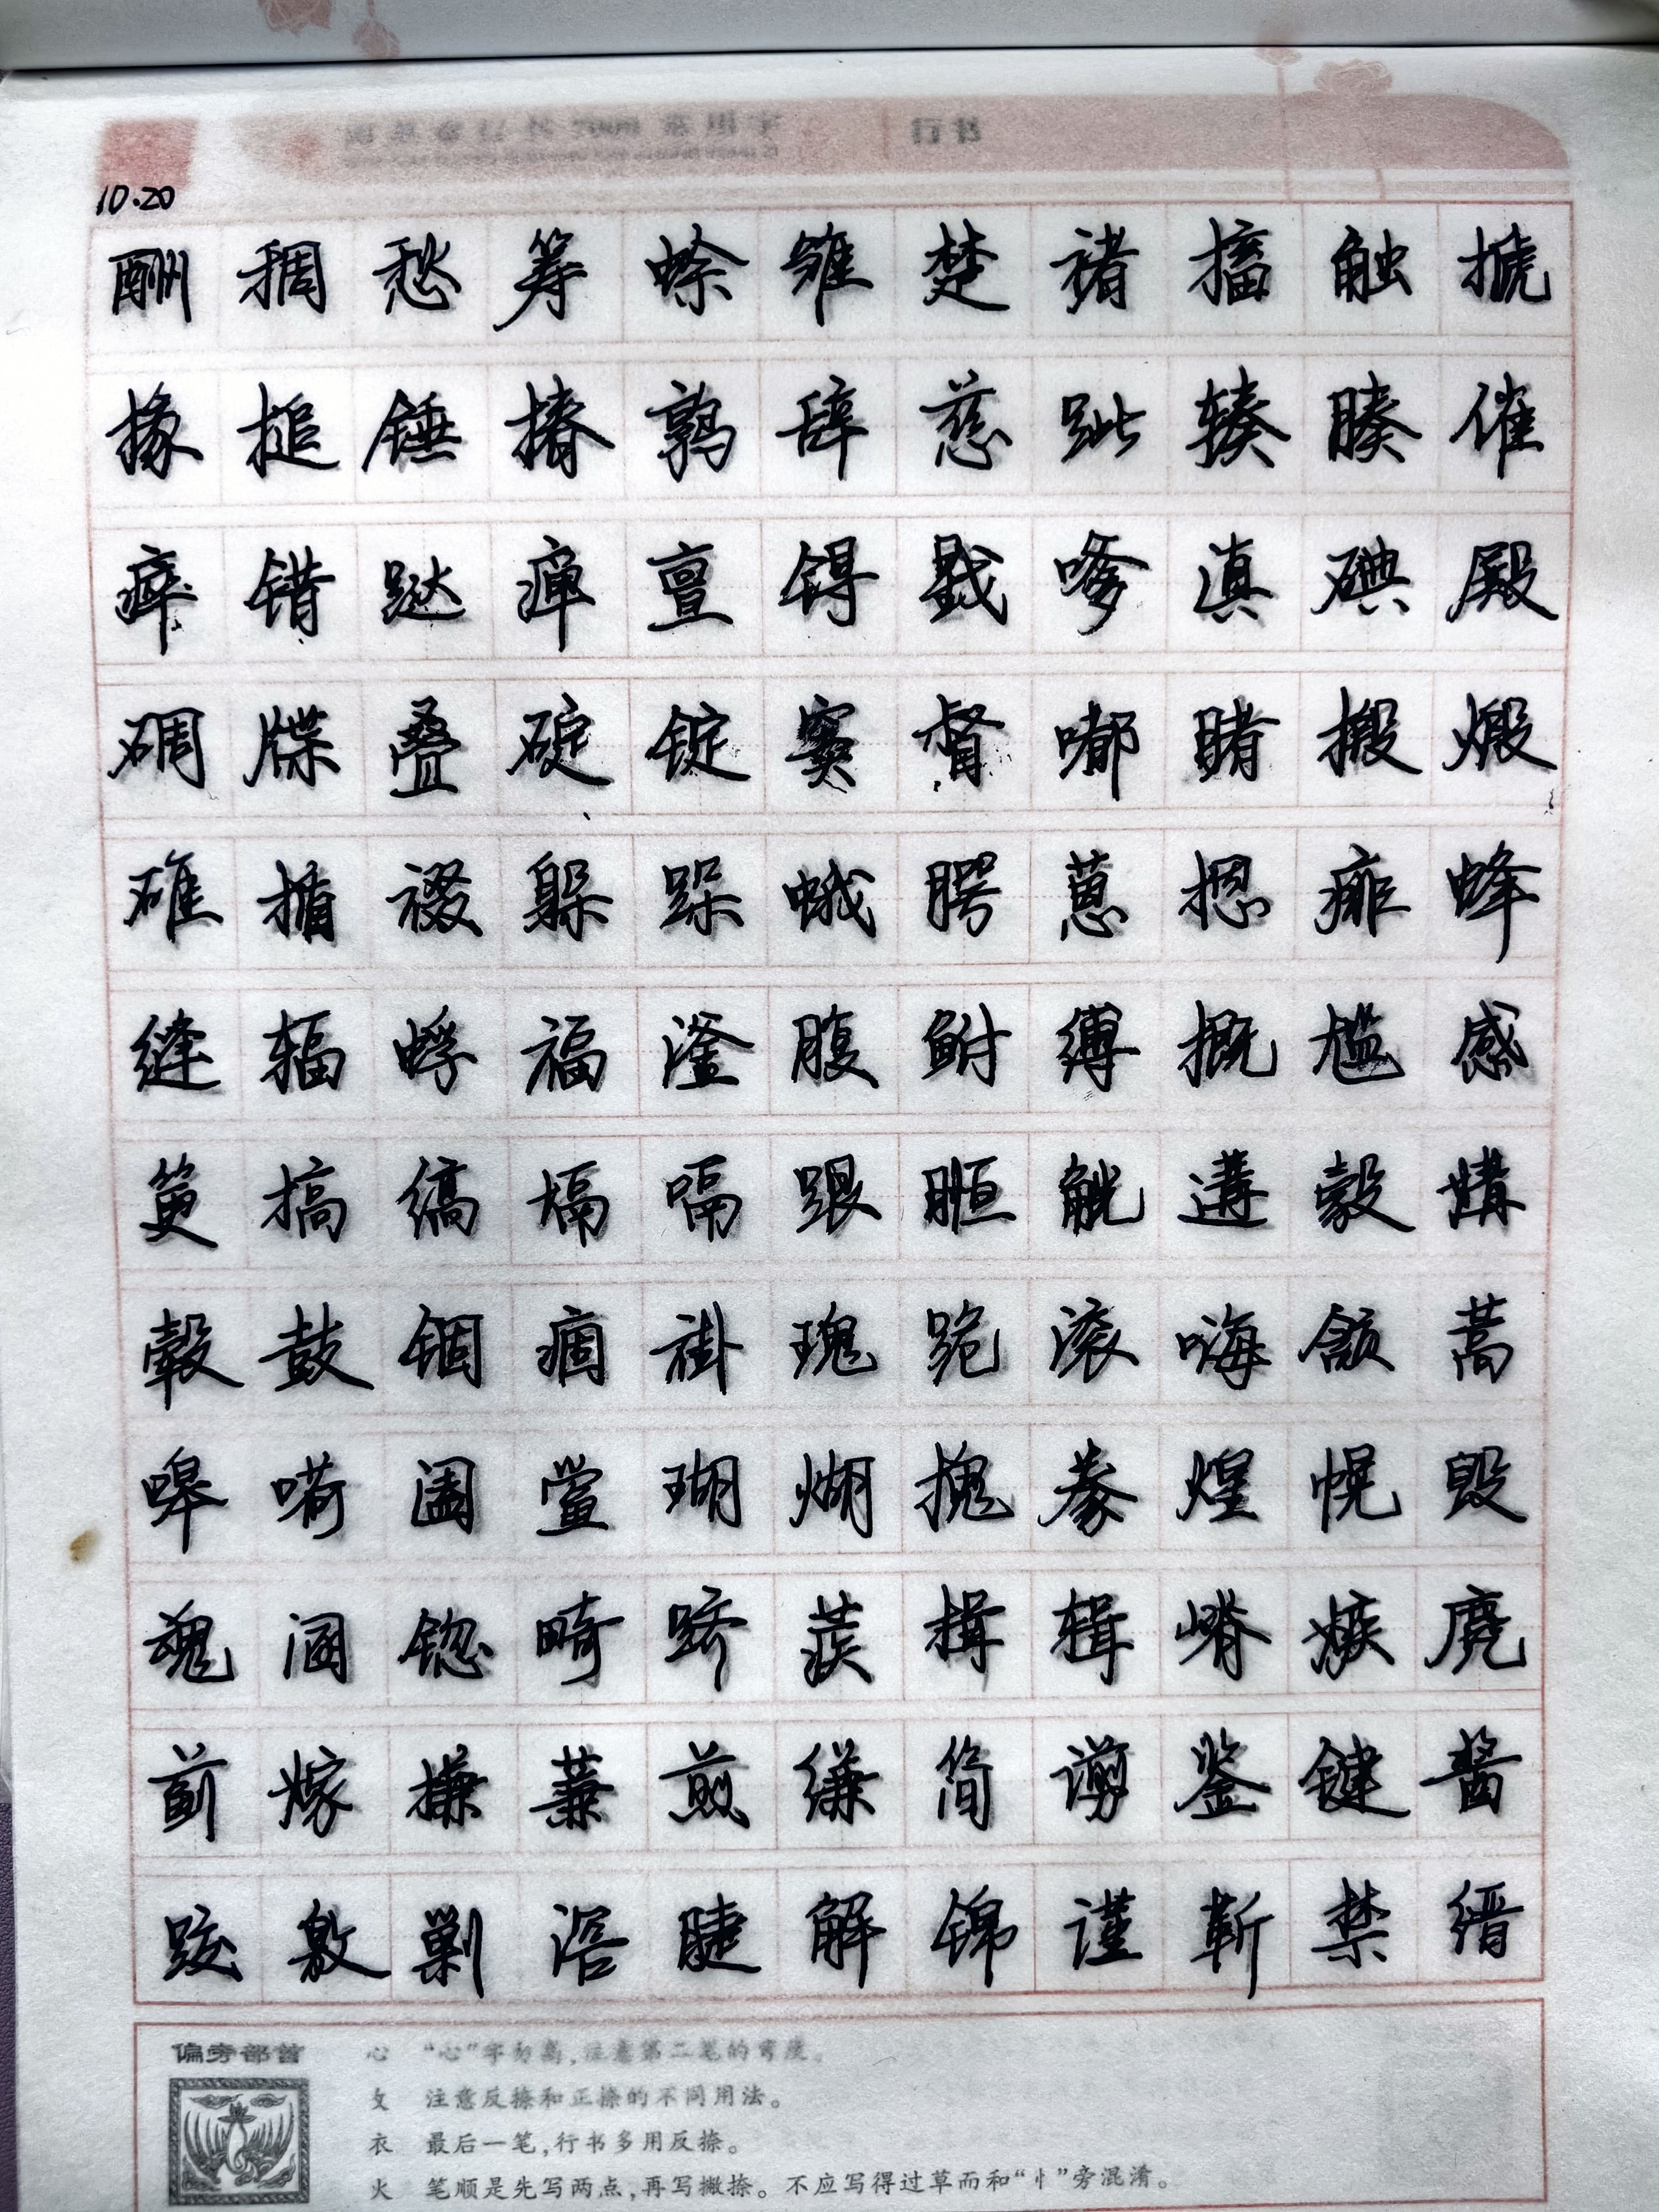 行书
10.20
酬 稠 愁 筹 蜍 雏 楚 褚 搐 触 搋
椽 槌 锤 椿 鹑 辞 慈 跐 辏 腠 催
瘁 错 跶 瘅 亶 锝 戥 嗲 滇 碘 殿
碉 牒 叠 碇 锭 窦 督 嘟 睹 椴 煅
碓 楯 裰 躲 跺 蛾 腭 蒽 摁 痱 蜂
缝 辐 蜉 福 滏 腹 鲋 缚 概 尴 感
筻 搞 缟 塥 嗝 跟 暅 觥 遘 彀 媾
毂 鼓 锢 痼 褂 瑰 跪 滚 嗨 颔 蒿
嗥 嗬 阖 黉 瑚 煳 槐 豢 煌 幌 毁
魂 溷 锪 畸 跻 蒺 楫 辑 嵴 嫉 麂
蓟 嫁 搛 蒹 煎 缣 简 谫 鉴 键 酱
跤 敫 剿 滘 睫 解 锦 谨 靳 禁 缙
偏旁部首
心 “心”字勿高,注意第二笔的弯度。
攵 注意反捺和正捺的不同用法。
衣 最后一笔,行书多用反捺。
火 笔顺是先写两点,再写撇捺。不应写得过草而和“忄”旁混淆。